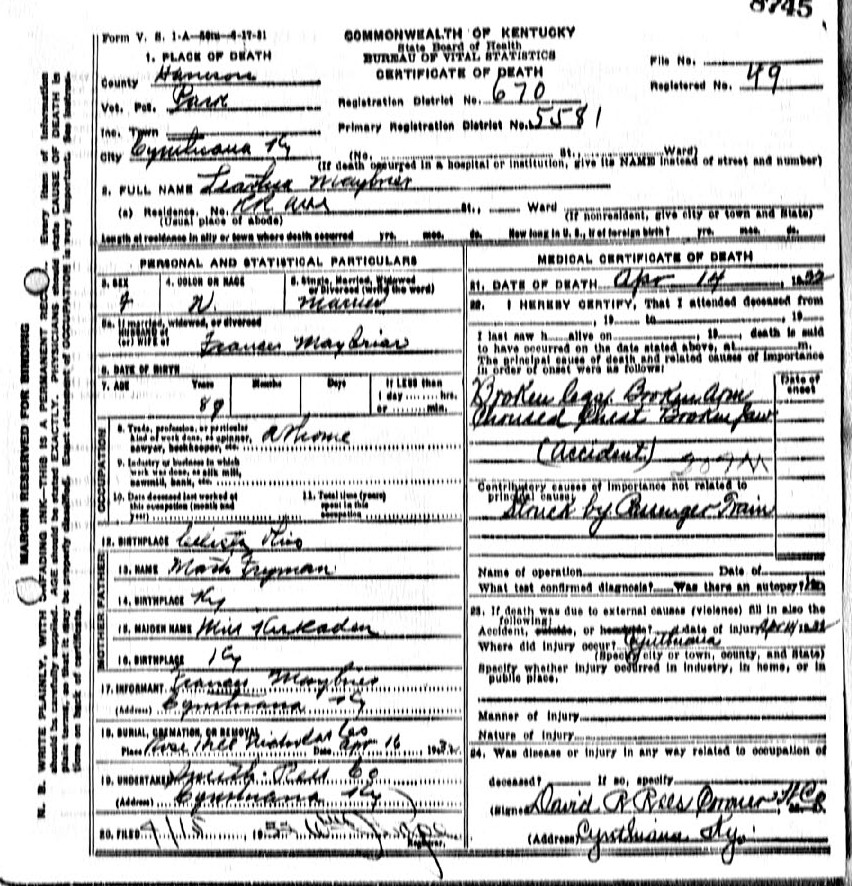 8745
Form V. S. 1-A
COMMONWEALTH OF KENTUCKY
State Board of Health
BUREAU OF VITAL STATISTICS
CERTIFICATE OF DEATH
1. PLACE OF DEATH
County Harrison
Vot. Pct.
Inc. Town
City Cynthiana Ky
File No.
Registered No. 49
Registration District No. 670
Primary Registration District No. 5581
(No. St., Ward)
(If death occurred in a hospital or institution, give its NAME instead of street and number)
2. FULL NAME Maybrier
(a) Residence, No. RR ave St., Ward
(Usual place of abode) (If nonresident, give city or town and State)
Length of residence in city or town where death occurred yrs. mos. ds. How long in U. S., if of foreign birth? yrs. mos. ds.
PERSONAL AND STATISTICAL PARTICULARS
3. SEX 4. COLOR OR RACE 5. Single, Married, Widowed or Divorced (write the word)
Married
5a. If married, widowed, or divorced
HUSBAND of
(or) WIFE of Frances Maybriar
6. DATE OF BIRTH
7. AGE Years Months Days If LESS than
1 day hrs.
or min.
OCCUPATION
8. Trade, profession, or particular
kind of work done, as spinner,
sawyer, bookkeeper, etc. at home
9. Industry or business in which
work was done, as silk mill,
sawmill, bank, etc.
10. Date deceased last worked at
this occupation (month and
year)
11. Total time (years)
spent in this
occupation
12. BIRTHPLACE
FATHER
13. NAME Fryman
14. BIRTHPLACE Ky
MOTHER
15. MAIDEN NAME Miss
16. BIRTHPLACE Ky
17. INFORMANT Frances Maybrier
(Address) Cynthiana Ky
18. BURIAL, CREMATION OR REMOVAL
Place Rose Hill Nicholas Co Date Apr 16 1932
19. UNDERTAKER Smith-Rees Co
(Address) Cynthiana Ky
20. FILED 4/15, 19
Registrar.
MEDICAL CERTIFICATE OF DEATH
21. DATE OF DEATH Apr 14 1932
22. I HEREBY CERTIFY, That I attended deceased from
, 19 to , 19
I last saw h alive on , 19 , death is said
to have occurred on the date stated above, at m.
The principal cause of death and related causes of importance
in order of onset were as follows:
Date of onset
Broken legs, Broken Arm
Chest Broken Jaw
(Accident)
Contributory causes of importance not related to
principal cause:
Struck by Passenger Train
Name of operation Date of
What test confirmed diagnosis? Was there an autopsy? No
23. If death was due to external causes (violence) fill in also the
following:
Accident, suicide, or homicide? date of injury Apr 14 1932
Where did injury occur? Cynthiana
(Specify city or town, county, and State)
Specify whether injury occurred in industry, in home, or in
public place.
Manner of injury
Nature of injury
24. Was disease or injury in any way related to occupation of
deceased? If so, specify
(Signed) David R Rees Coroner H.C.
(Address) Cynthiana Ky.
MARGIN RESERVED FOR BINDING
N. B. WRITE PLAINLY, WITH UNFADING INK—THIS IS A PERMANENT RECORD. Every item of information
should be carefully supplied. AGE should be stated EXACTLY. PHYSICIANS should state CAUSE OF DEATH in
plain terms, so that it may be properly classified. Exact statement of OCCUPATION is very important. See instruc-
tions on back of certificate.